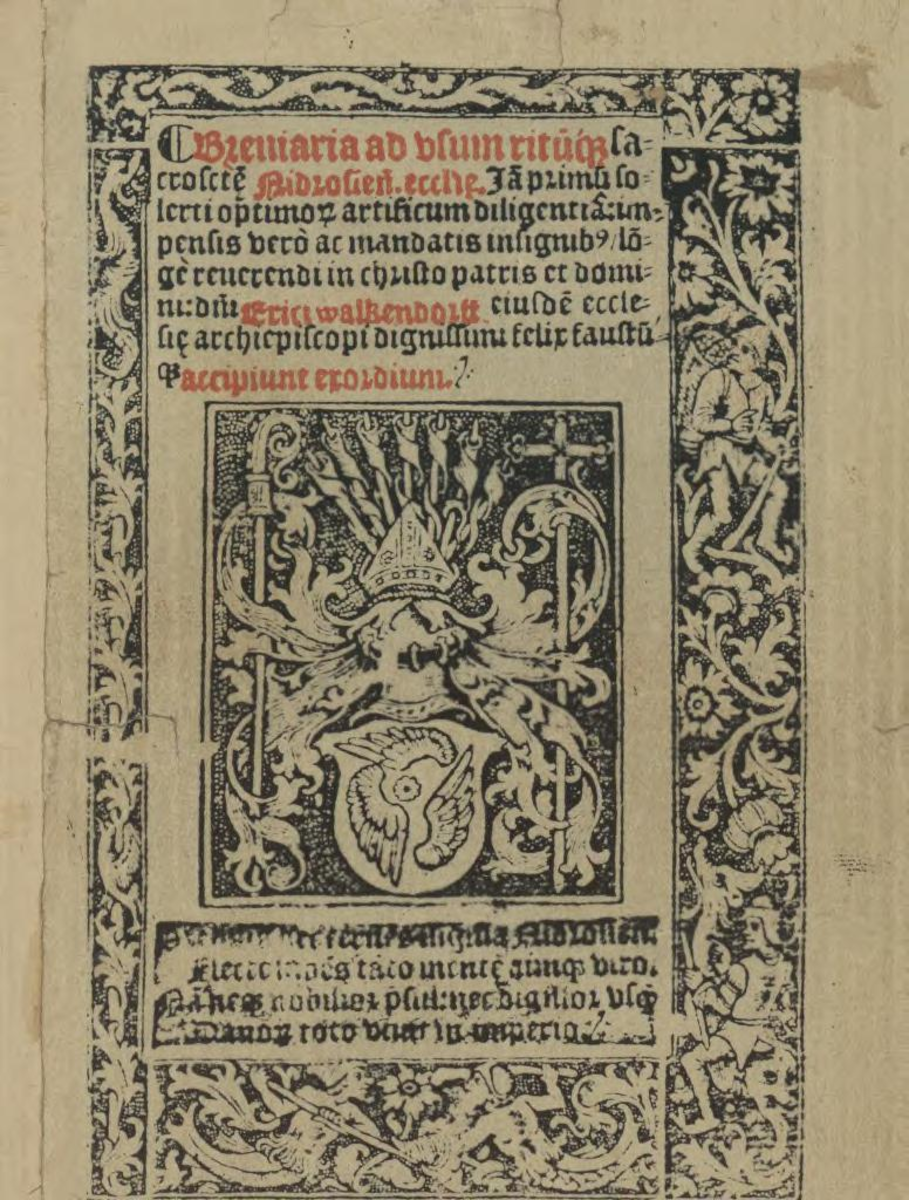 Breuiaria ad vsum ritūqꝫ sa-
croſctē Nidroſieñ. eccłię. Jā primū ſo-
lerti optimoꝝ artificum diligentiā: im-
penſis verò ac mandatis inſignibꝰ / lō-
gè reuerendi in chriſto patris et domi-
ni: dñi Erici walkendorff eiuſdē eccle-
ſię archiepiſcopi digniſſimi felix fauſtū-
qꝫ accipiunt exordium.
inſignia Nidroſieñ.
tāto mentę aīmoqꝫ viro.
nobilior pſul: nec dignior vſqꝫ
Danoꝝ toto viuit in imperio.